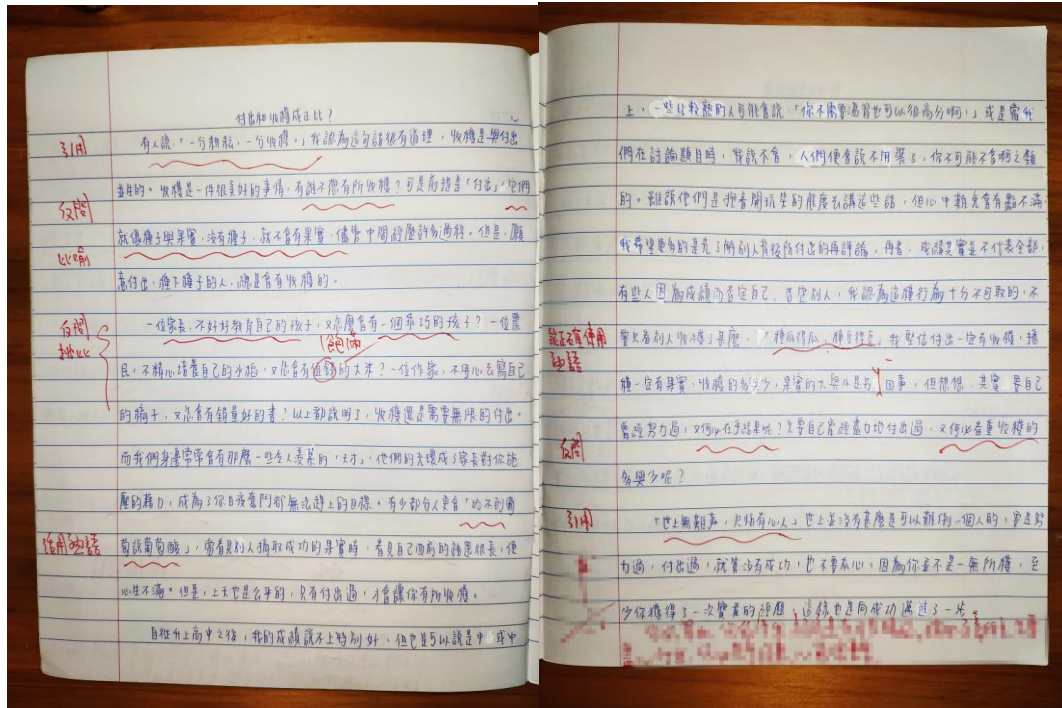 付出和收穫成正比？
引用
有人說「一分耕耘，一分收穫。」我認為這句話很有道理，收穫是與付出
並生的。收穫是一件很美好的事情，有誰不想有所收穫？可是前提是「付出」，它們
反問
就像種子與果實，沒有種子，就不會有果實，儘管中間經歷許多過程。但是，願
比喻
意付出，種下種子的人，總是會有收穫的。
反問
一位家長，不好好教育自己的孩子，又怎麼會有一個乖巧的孩子？一位農
排比
飽滿
民，不精心培養自己的水稻，又怎會有值錢的大米？一位作家，不用心去寫自己
的稿子，又怎會有銷量好的書？以上都說明了，收穫還是需要無限的付出。
而我們身邊常常會有那麼一些令人羨慕的「天才」，他們的光環成了家長對你施
壓的藉口，成為了你日夜奮鬥卻無法趕上的目標。有少部分人更會「吃不到葡
活用地語
萄說葡萄酸」，當看見別人摘取成功的果實時，看見自己面前的路還很長，便
心生不滿。但是，上天也是公平的，只有付出過，才會讓你有所收穫。
自從升上高中之後，我的成績說不上特別好，但也是可以說是中
上，一些比較熟的人可能會說，「你不需要溫習也可以很高分啊！」或是當我
們在討論題目時，我說不會，人們便會說不用裝了，你不可能不會啊之類
的。雖說他們是抱着開玩笑的態度去講這些話，但心中難免會有點不滿
我希望更多的是先了解別人背後所付出的再評論。再者，成績其實並不代表全部，
有些人因為成績而否定自己、否定別人，我認為這種行為十分不可取的，不
能正確使用
要只看別人收穫了甚麼，「種瓜得瓜，種豆得豆」我堅信付出一定有收穫，播
種一定有果實，收穫的多與少，果實的大與小是另回事，但想想，其實要自己
曾經努力過，又何必在乎結果呢？只要自己曾經盡力地付出過，又何必看重收穫的
反問
多與少呢？
引用
「世上無難事，只怕有心人」世上並沒有甚麼是可以難倒一個人的，要是努
力過，付出過，就算沒有成功，也不要灰心，因為你並不是一無所穫，至
少你獲得了一次寶貴的經歷，這樣也是向成功邁進了一步